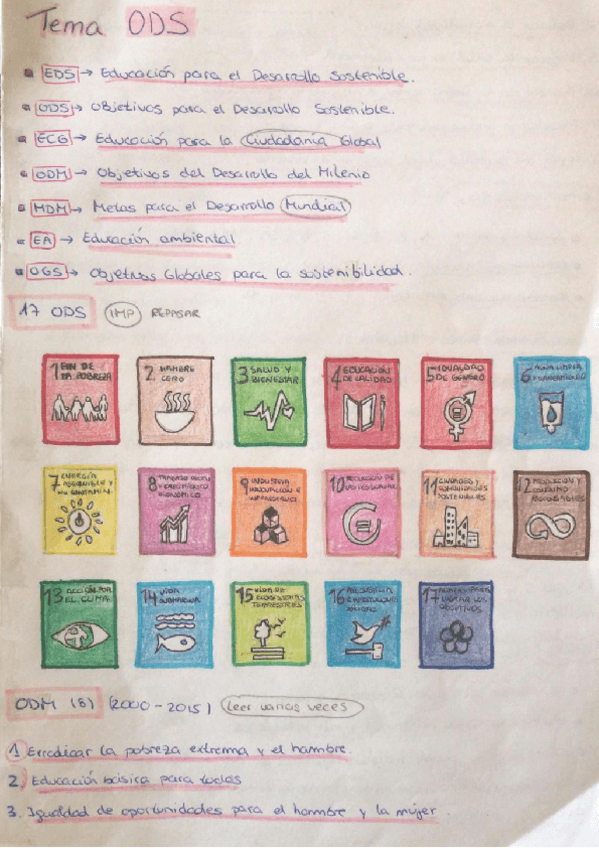 Tema ODS
EDS → Educación para el Desarrollo Sostenible.
ODS → Objetivos para el Desarrollo Sostenible.
ECG → Educación para la Ciudadanía Global
ODM → Objetivos del Desarollo del Milenio
MDM → Metas para el Desarrollo Mundial
EA → Educación ambiental
OGS → Objetivos Globales para la sostenibilidad.
17 ODS IMP REPASAR
1 FIN DE LA POBREZA
2 HAMBRE CERO
3 SALUD Y BIENESTAR
4 EDUCACIÓN DE CALIDAD
5 IGUALDAD DE GÉNERO
6 AGUA LIMPIA Y SANEAMIENTO
7 ENERGÍA ASEQUIBLE Y NO CONTAMIN.
8 TRABAJO DECENTE Y CRECIMIENTO ECONÓMICO
9 INDUSTRIA INNOVACIÓN E
10 REDUCCIÓN DE
11 CIUDADES Y COMUNIDADES SOSTENIBLES
12 PRODUCCIÓN Y CONSUMO
13 ACCIÓN POR EL CLIMA
14 VIDA SUBMARINA
15 VIDA DE ECOSISTEMAS TERRESTRES
16
17 OBJETIVOS
ODM (8) (2000-2015) Leer varias veces
1 Erradicar la pobreza extrema y el hambre.
2 Educación básica para todos
3. Igualdad de oportunidades para el hombre y la mujer.